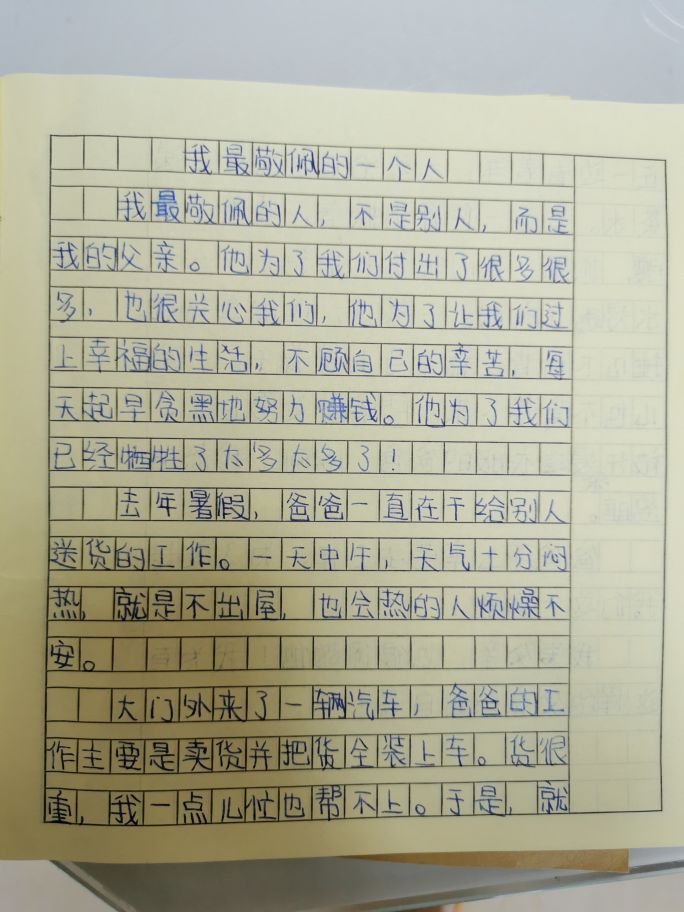 我最敬佩的一个人
我最敬佩的人，不是别人，而是
我的父亲。他为了我们付出了很多很
多，也很关心我们，他为了让我们过
上幸福的生活，不顾自己的辛苦，每
天起早贪黑地努力赚钱。他为了我们
已经牺牲了太多太多了！
去年暑假，爸爸一直在干给别人
送货的工作。一天中午，天气十分闷
热，就是不出屋，也会热的人烦燥不
安。
大门外来了一辆汽车，爸爸的工
作主要是卖货并把货全装上车。货很
重，我一点儿忙也帮不上。于是，就